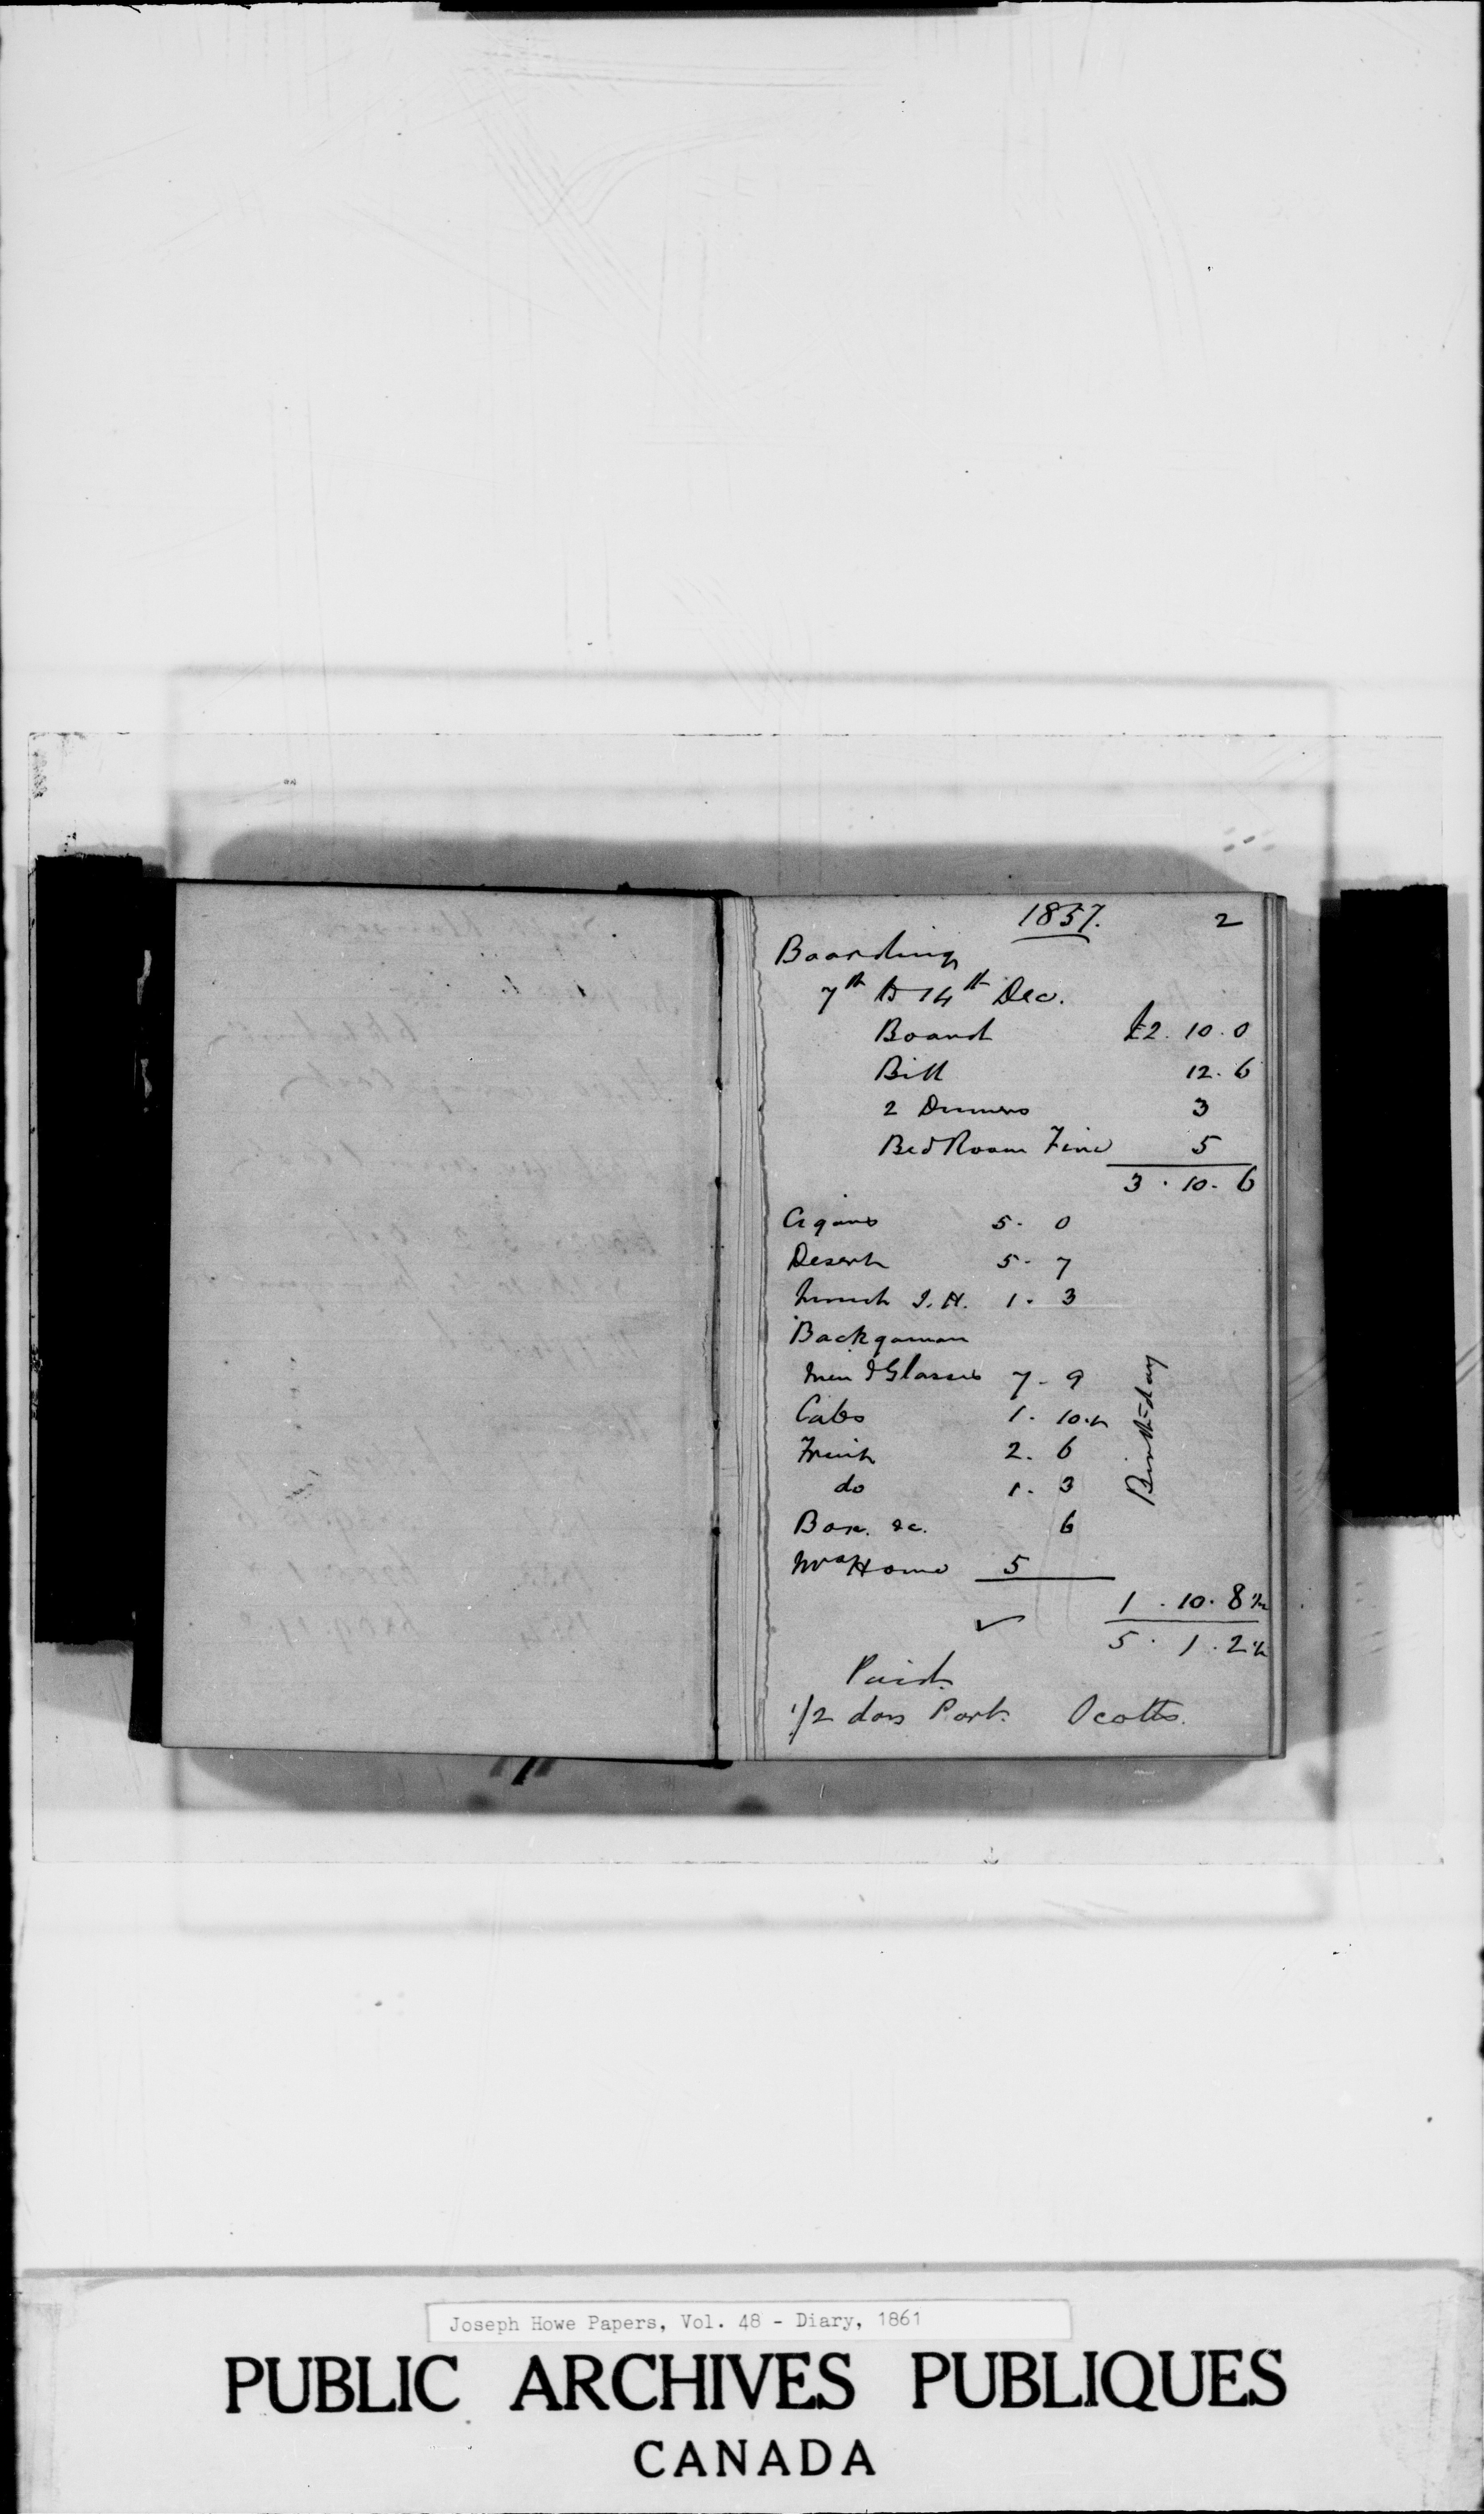 1857. 2
Boarding
7th to 14th Dec.
Board £2. 10. 0
Bill 12. 6
2 Dinners 3
Bed Room Fire 5
3. 10. 6
Cigars 5. 0
Desert 5. 7
Lunch J. H. 1. 3
Backgaman
Men & Glasses 7. 9
Cabs 1. 10.½
Fruit 2. 6
do 1. 3
Box. &c. 6
Mrs Howe 5
Birth-day
1. 10. 8½
5. 1. 2½
Paid.
1/2 doz Port. Scotts.
Joseph Howe Papers, Vol. 48 - Diary, 1861
PUBLIC ARCHIVES PUBLIQUES
CANADA